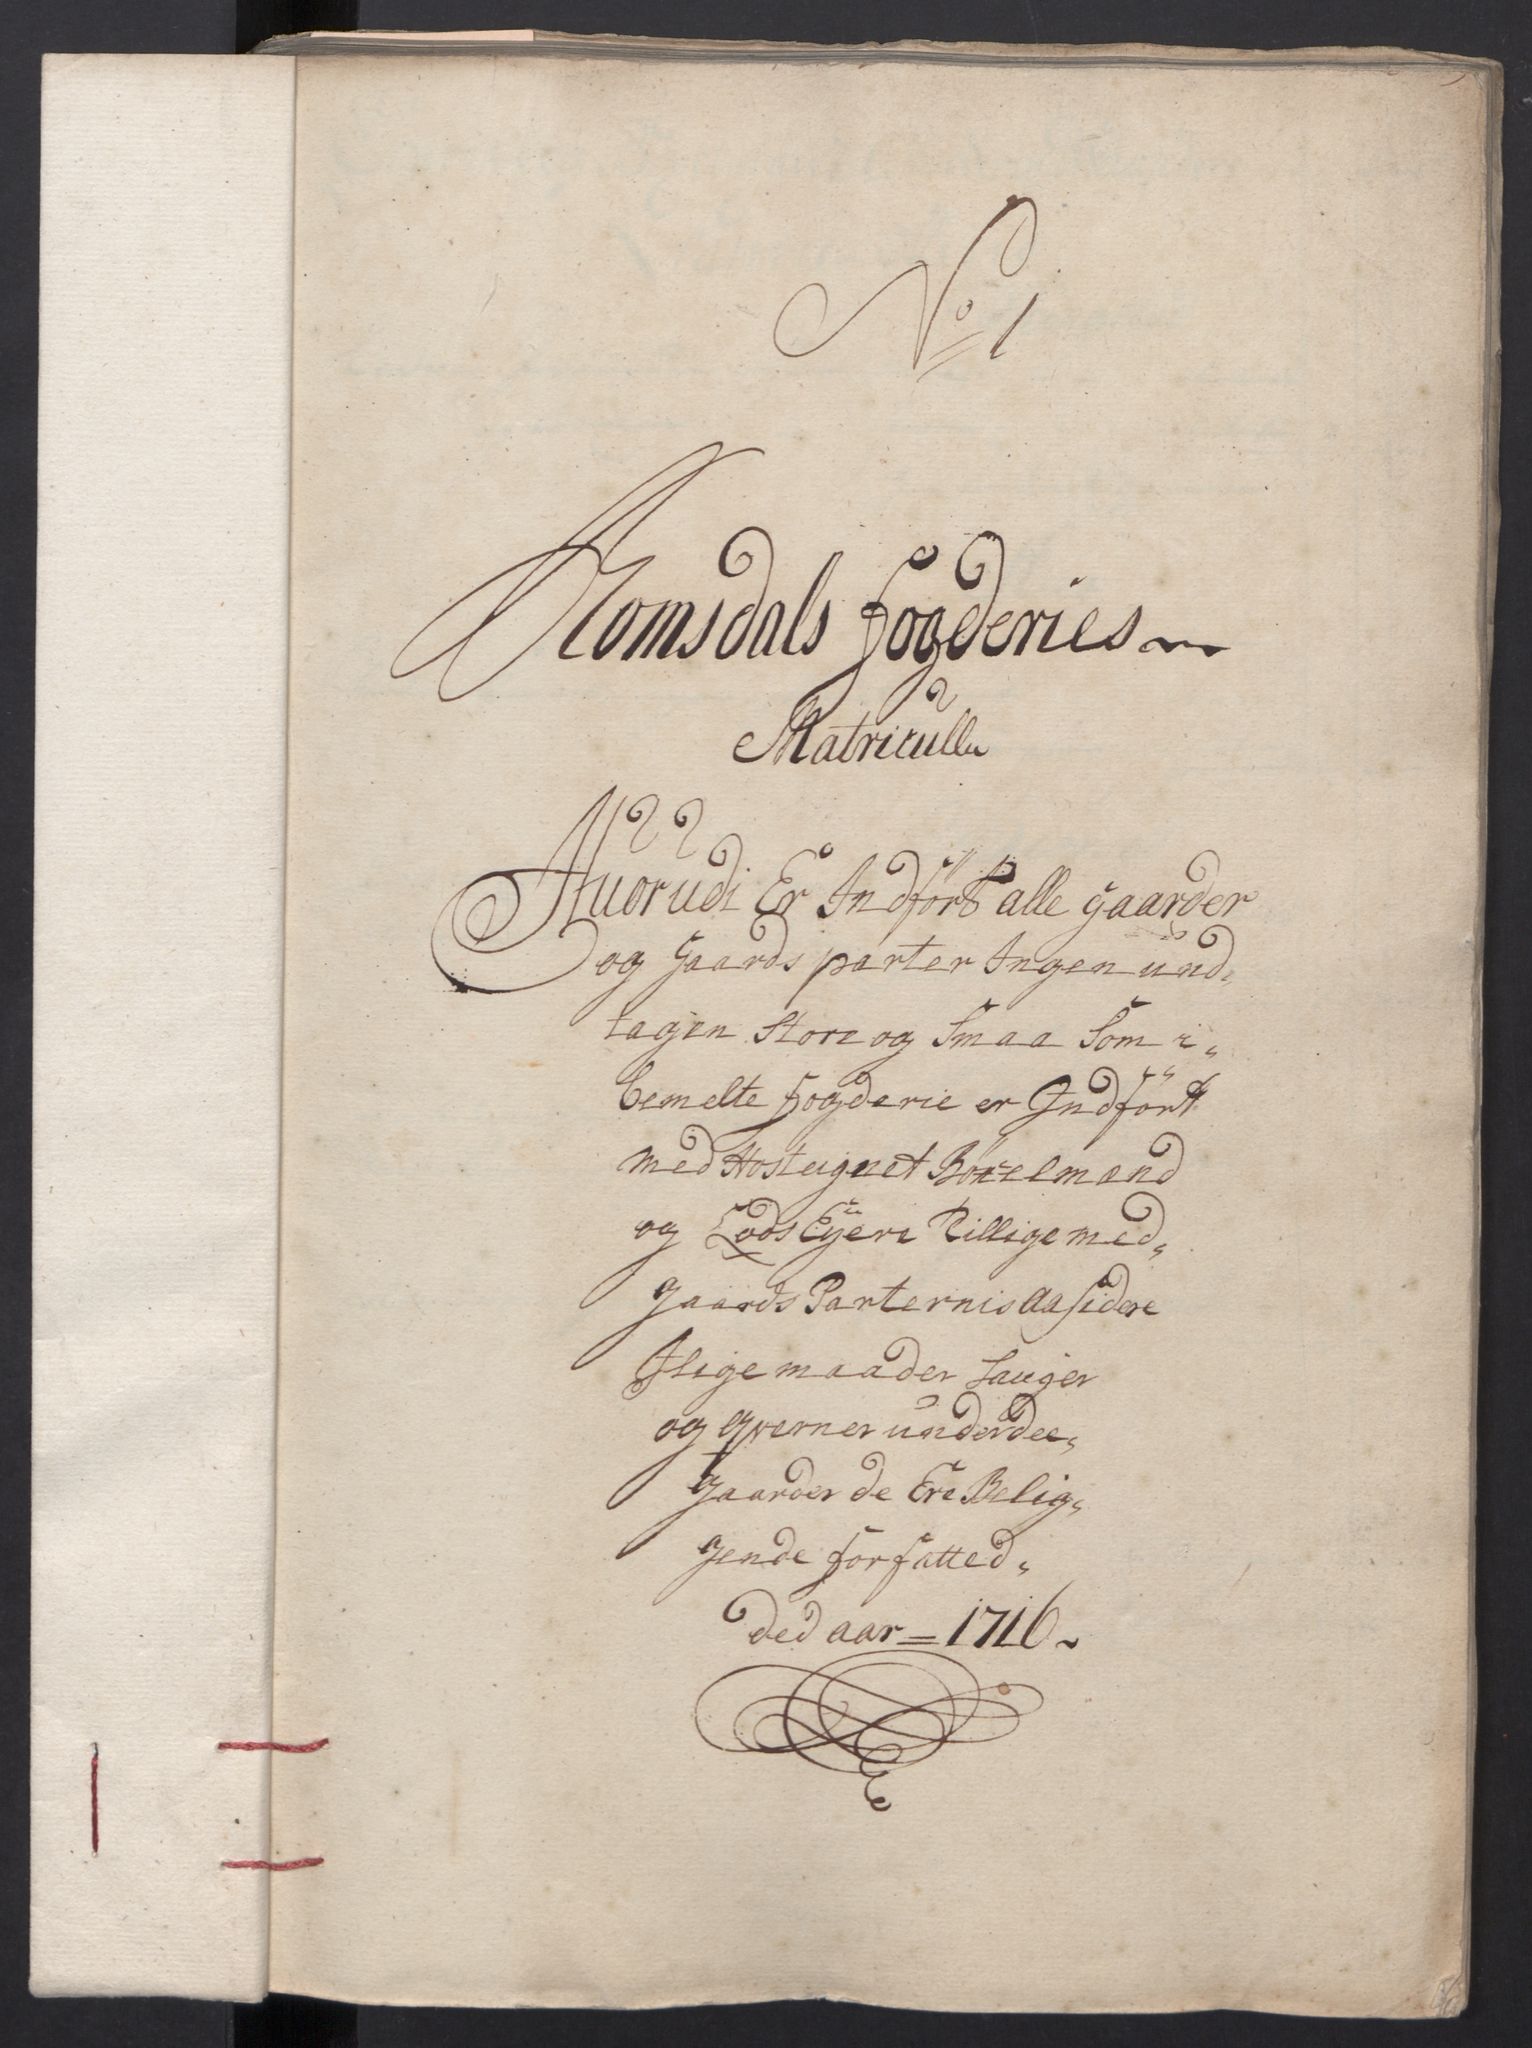 No 1
Romsdals fogderies
Matricull
Huorudi Er Indført alle gaarder
og gaards parter Ingen und,
tagen Store og Smaa Som i,
bemelte fogderie er Indført
med Hosteignet Böxelmænd
og Lods Eÿere Tillige med,
gaards Parternis Aasidere
Jlige maader Sauger
og qverner under dee,
gaarder de Ere Belig,
gende forfatted,
ded aar = 1716